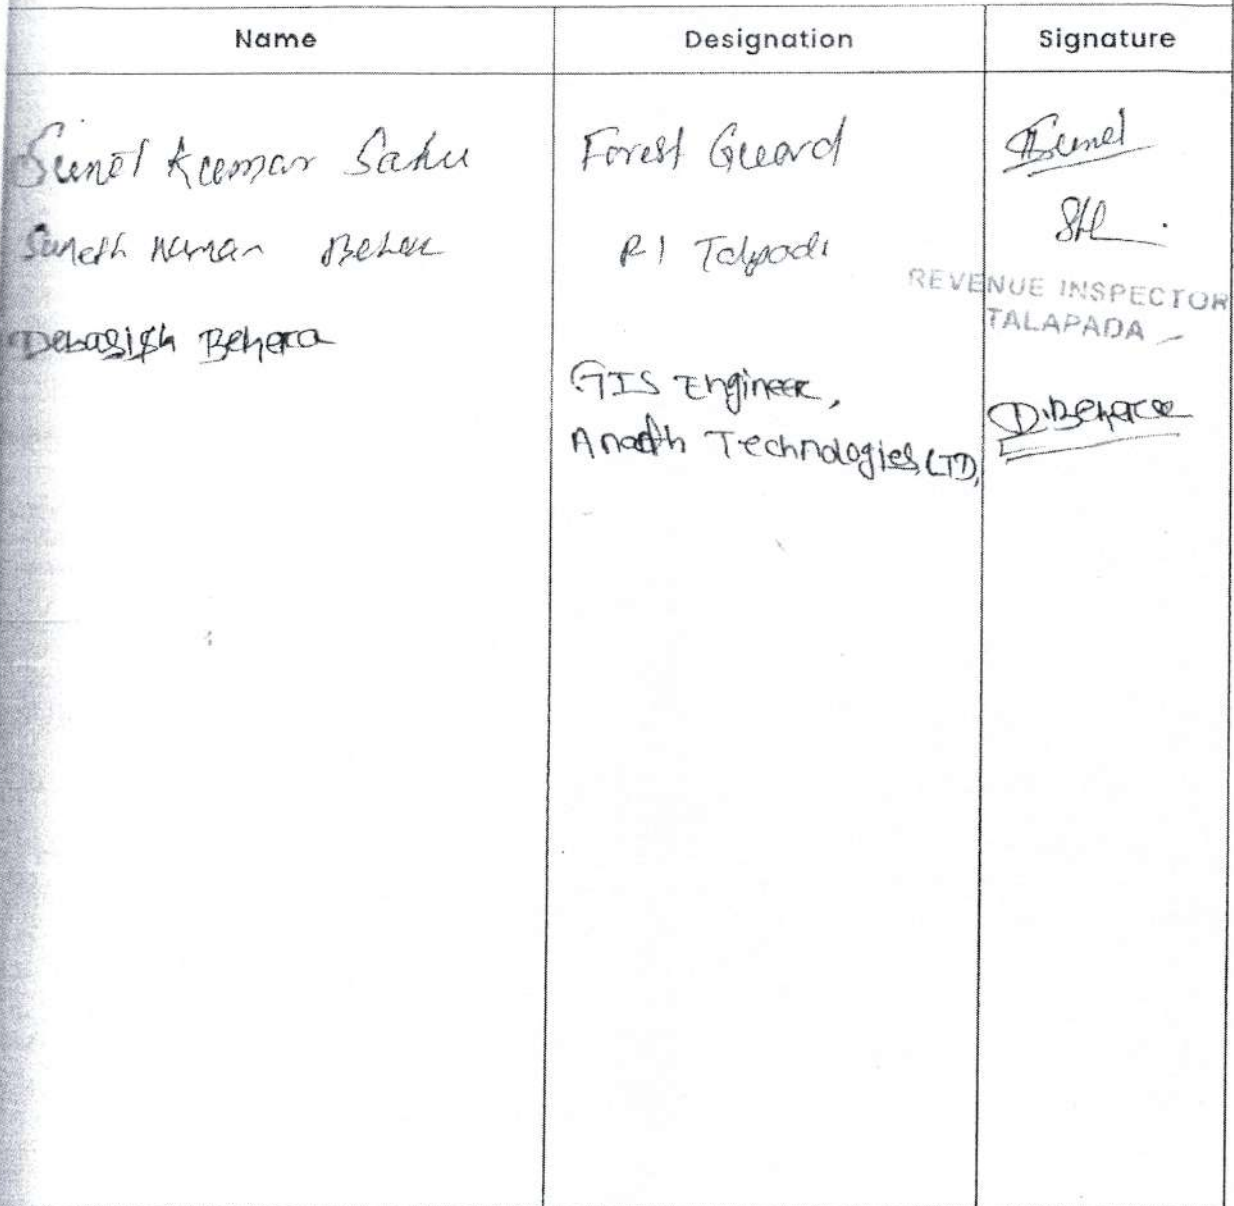 Name Designation Signature
Sunil Kumar Sahu Forest Guard Sunil
Behera RI Talpadi
REVENUE INSPECTOR
TALAPADA
Debasish Behera
GIS Engineer, D.Behera
Ananth Technologies LTD,